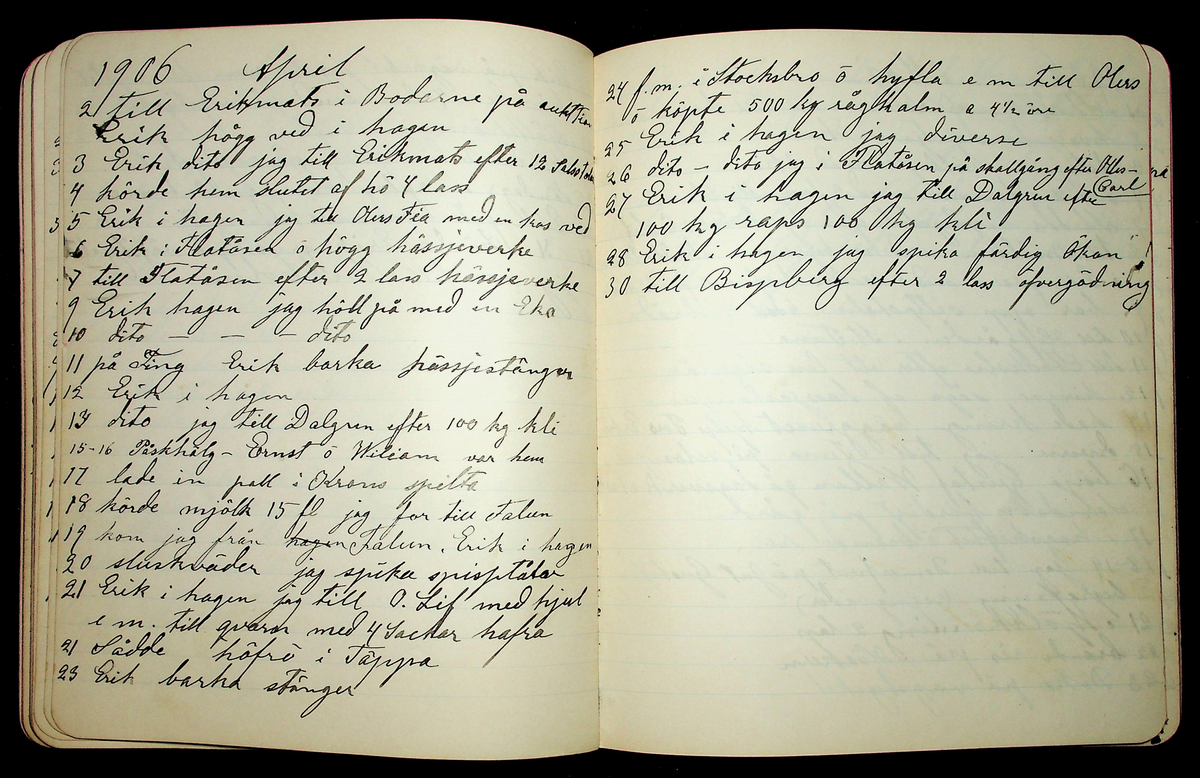 1906 April
2 till Erikmats i Bodarne på auktion
Erik högg ved i hagen
3 Erik dito jag till Erikmats efter 12
4 körde hem slutet af hö 4 lass
5 Erik i hagen jag till Olers Fea med en kas ved
6 Erik i Flatåsen ö högg hässjeverke
7 till Flatåsen efter 2 lass hässjeverke
9 Erik hagen jag höll på med en Eka
10 dito — — — dito
11 på Ting Erik barka hässjestänger
12 Erik i hagen
13 dito jag till Dalgren efter 100 kg kli
15-16 Påskhälg - Ernst ö Wiliam var hem
17 lade in pall i Krons spilta
18 körde mjölk 15 fl jag for till Falun
19 kom jag från hagen Falun. Erik i hagen
20 sluskväder jag spika spisplåtar
21 Erik i hagen jag till O. Lif med hjul
e m. till qvarn med 4 Säckar hafra
21 Sådde höfrö i Täppa
23 Erik barka stänger
24 f.m. i Stocksbro ö hyfla e m till Olers
ö köpte 500 kg råghalm a 4½ öre
25 Erik i hagen jag diverse
26 dito - dito jag i Flatåsen på skallgång efter Olers-
Carl
27 Erik i hagen jag till Dalgren efter
100 kg raps 100 kg kli
28 Erik i hagen jag spika färdig Ökan
30 till Bispberg efter 2 lass öfvergödning